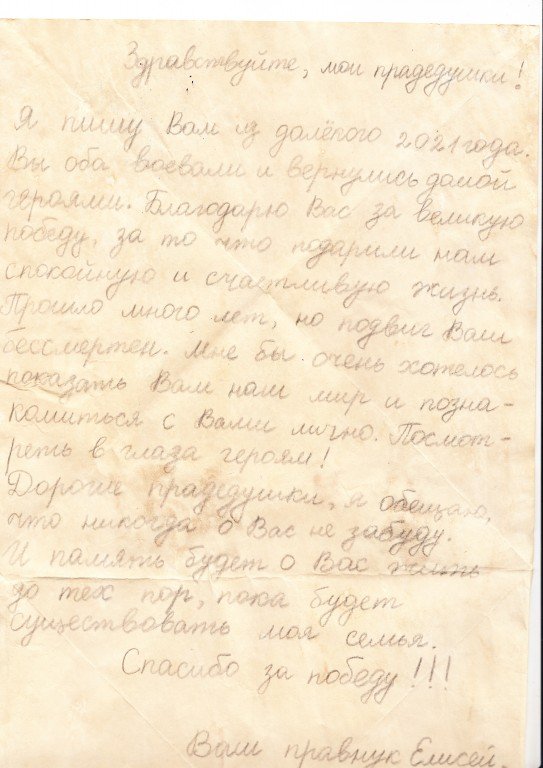 Здравствуйте, мои прадедушки!
Я пишу Вам из далёкого 2021 года.
Вы оба воевали и вернулись домой
героями. Благодарю Вас за великую
победу, за то что подарили нам
спокойную и счастливую жизнь.
Прошло много лет, но подвиг Ваш
бессмертен. Мне бы очень хотелось
показать Вам наш мир и позна-
комиться с Вами лично. Посмот-
реть в глаза героям!
Дорогие прадедушки, я обещаю,
что никогда о Вас не забуду.
И память будет о Вас жить
до тех пор, пока будет
существовать моя семья.
Спасибо за победу!!!
Ваш правнук Елисей.